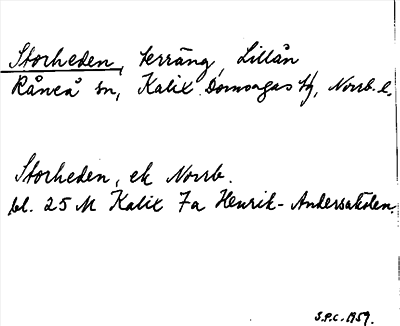 Storheden, terräng, Lillån
Råneå sn, Kalix Domsagas tg, Norrb. l.
Storheden, ek Norrb.
bl. 25 M Kalix 7a Henrik-Andersasken.
S.P.C. 1959.